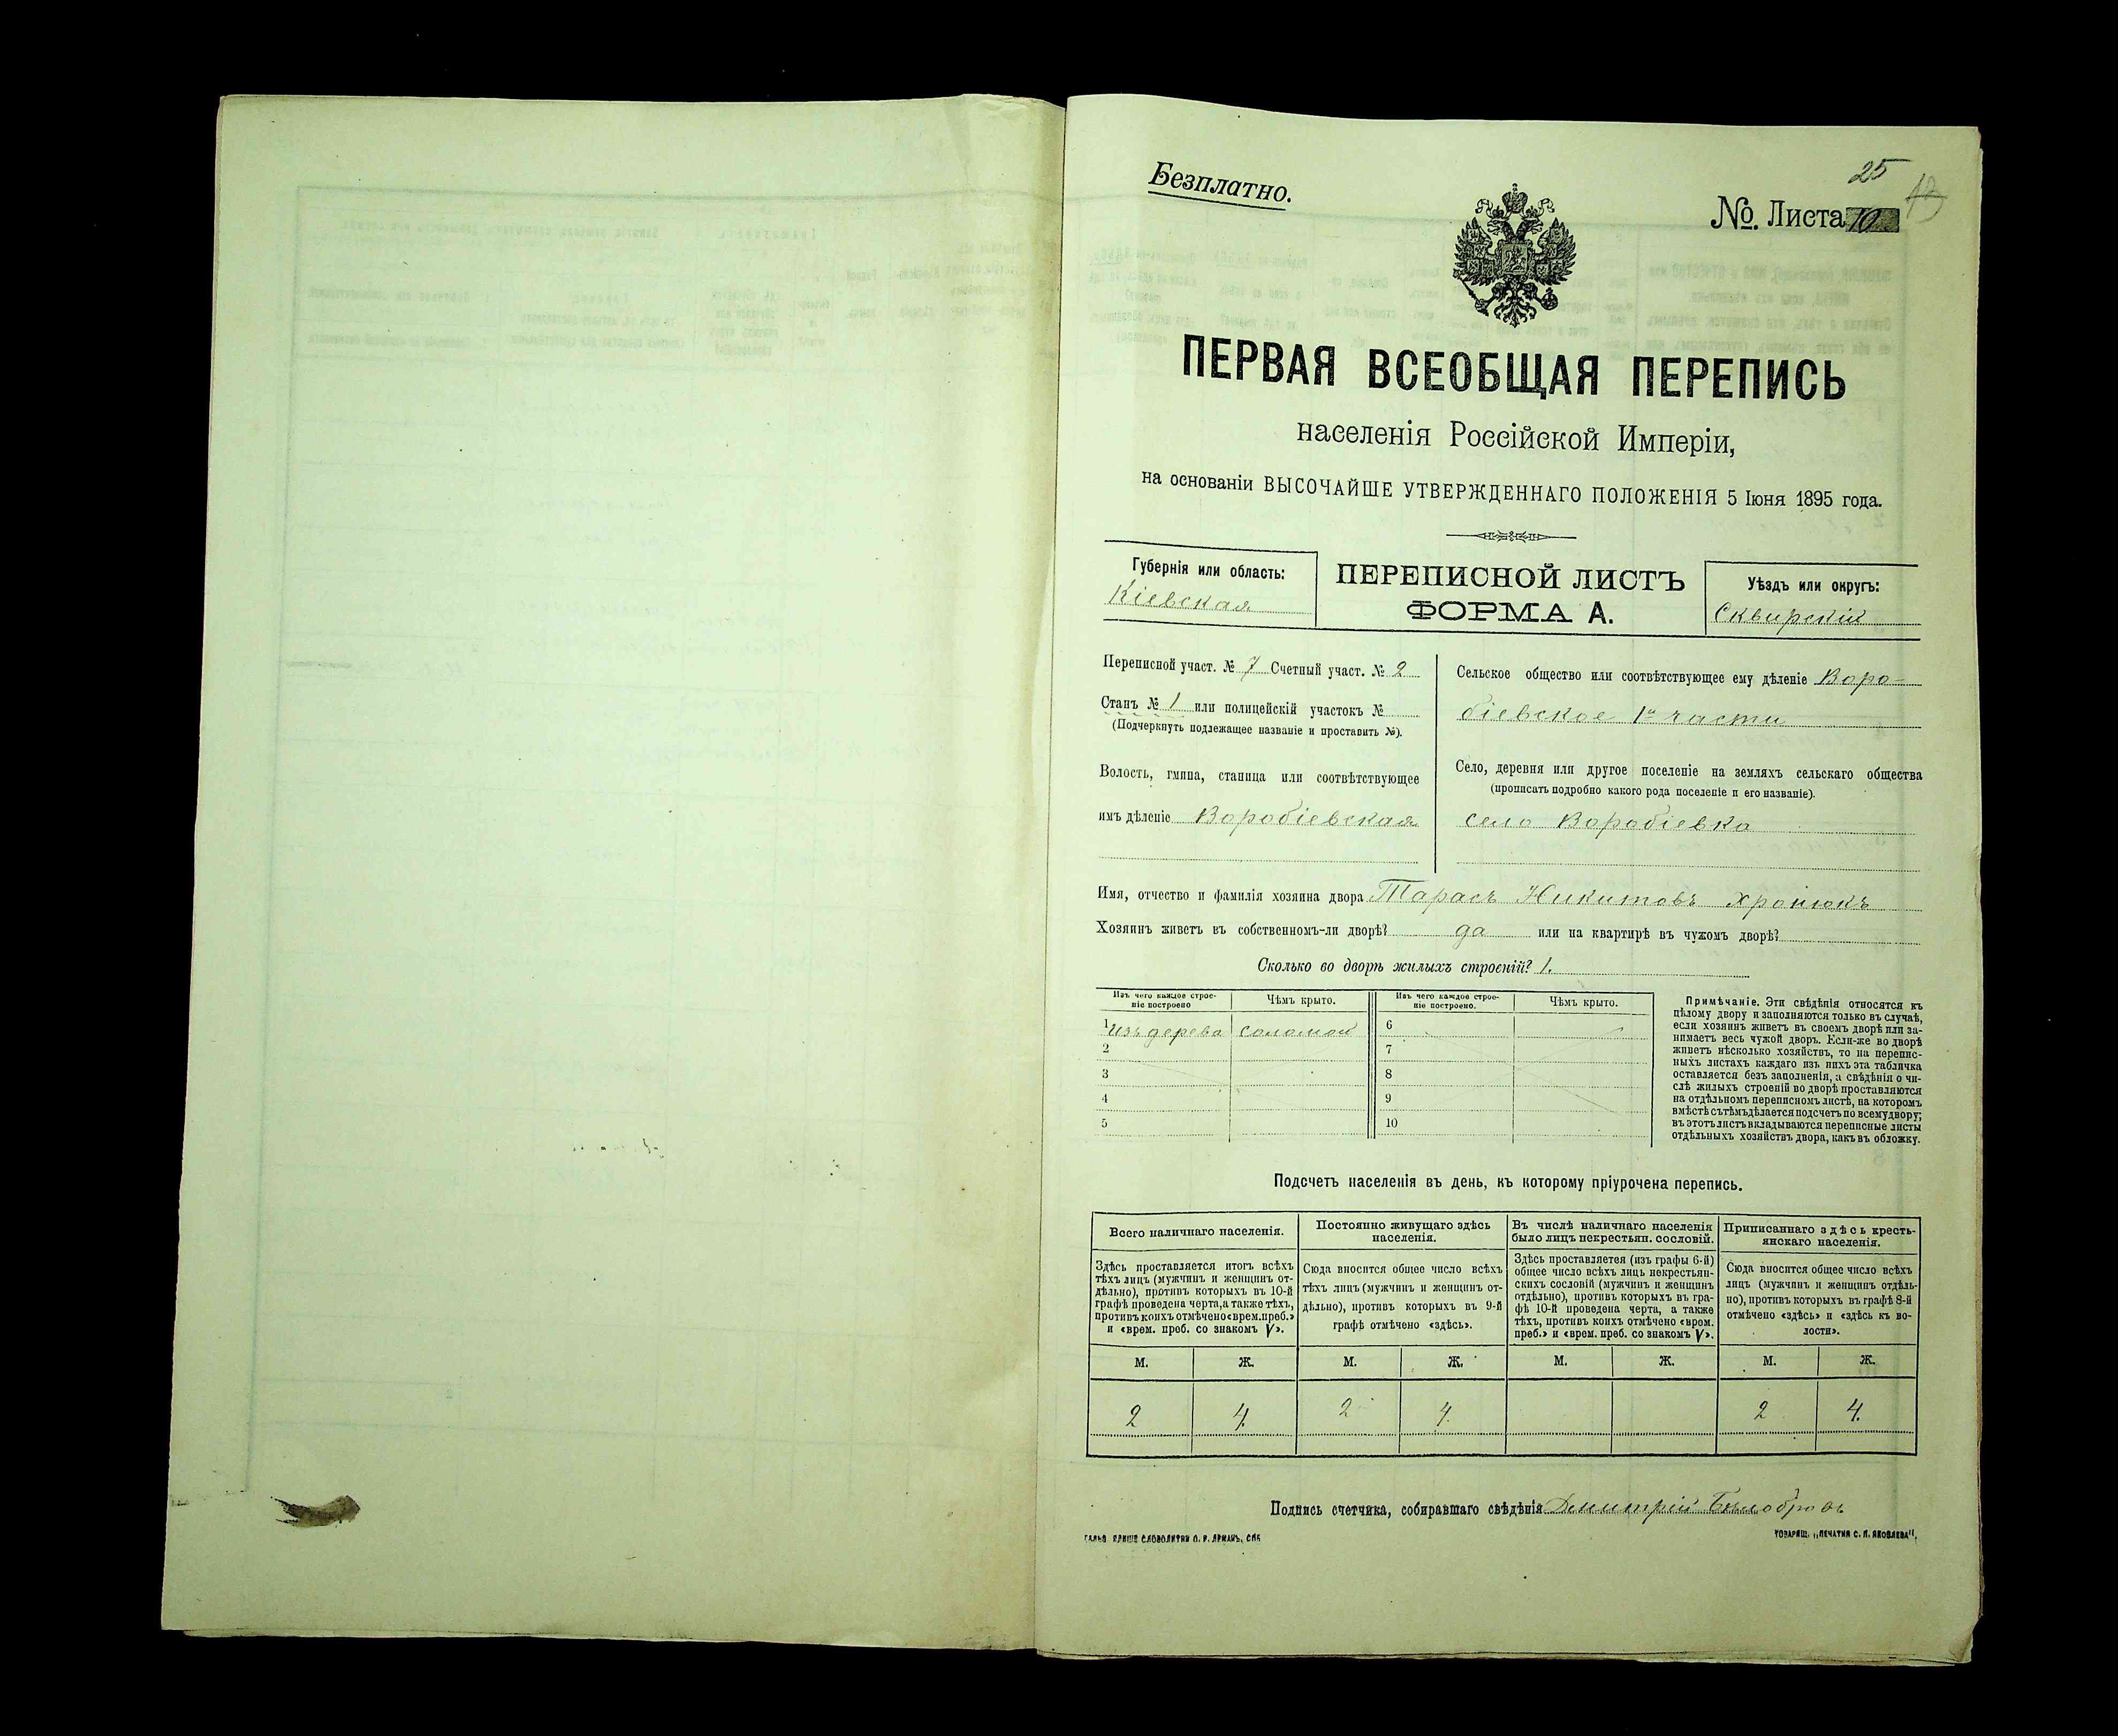 Безплатно.
25
13
№. Листа 10
ПЕРВАЯ ВСЕОБЩАЯ ПЕРЕПИСЬ
населенія Россійской Имперіи,
на основаніи ВЫСОЧАЙШЕ УТВЕРЖДЕННАГО ПОЛОЖЕНІЯ 5 Іюня 1895 года.
Губернія или область:
Кіевская
ПЕРЕПИСНОЙ ЛИСТЪ
ФОРМА А.
Уѣздъ или округъ:
Сквирскій
Переписной участ. № 7 Счетный участ. № 2
Станъ № 1 или полицейскій участокъ №
(Подчеркнуть подлежащее названіе и проставить №).
Волость, гмина, станица или соотвѣтствующее
имъ дѣленіе Воробіевская
Сельское общество или соотвѣтствующее ему дѣленіе Воро-
біевское 1й части
Село, деревня или другое поселеніе на земляхъ сельскаго общества
(прописать подробно какого рода поселеніе и его названіе).
село Воробіевка
Имя, отчество и фамилія хозяина двора Тарасъ Никитовъ
Хозяинъ живетъ въ собственномъ-ли дворѣ? да или на квартирѣ въ чужомъ дворѣ?
Сколько во дворѣ жилыхъ строеній? 1.
Изъ чего каждое строе-
ніе построено
Чѣмъ крыто.
Изъ чего каждое строе-
ніе построено.
Чѣмъ крыто.
1 изъ дерева соломой
2
3
4
5
6
7
8
9
10
Примѣчаніе. Эти свѣдѣнія относятся къ
цѣлому двору и заполняются только въ случаѣ,
если хозяинъ живетъ въ своемъ дворѣ или за-
нимаетъ весь чужой дворъ. Если-же во дворѣ
живетъ нѣсколько хозяйствъ, то на перепис-
ныхъ листахъ каждаго изъ нихъ эта табличка
оставляется безъ заполненія, а свѣдѣнія о чи-
слѣ жилыхъ строеній во дворѣ проставляются
на отдѣльномъ переписномъ листѣ, на которомъ
вмѣстѣ съ тѣмъ дѣлается подсчетъ по всему двору;
въ этотъ листъ вкладываются переписные листы
отдѣльныхъ хозяйствъ двора, какъ въ обложку.
Подсчетъ населенія въ день, къ которому пріурочена перепись.
Всего наличнаго населенія.
Постоянно живущаго здѣсь
населенія.
Въ числѣ наличнаго населенія
было лицъ некрестьян. сословій.
Приписаннаго здѣсь кресть-
янскаго населенія.
Здѣсь проставляется итогъ всѣхъ
тѣхъ лицъ (мужчинъ и женщинъ от-
дѣльно), противъ которыхъ въ 10-й
графѣ проведена черта, а также тѣхъ,
противъ коихъ отмѣчено «врем. преб.»
и «врем. преб. со знакомъ V».
Сюда вносится общее число всѣхъ
тѣхъ лицъ (мужчинъ и женщинъ от-
дѣльно), противъ которыхъ въ 9-й
графѣ отмѣчено «здѣсь».
Здѣсь проставляется (изъ графы 6-й)
общее число всѣхъ лицъ некрестьян-
скихъ сословій (мужчинъ и женщинъ
отдѣльно), противъ которыхъ въ гра-
фѣ 10-й проведена черта, а также
тѣхъ, противъ коихъ отмѣчено «врем.
преб.» и «врем. преб. со знакомъ V».
Сюда вносится общее число всѣхъ
лицъ (мужчинъ и женщинъ отдѣль-
но), противъ которыхъ въ графѣ 8-й
отмѣчено «здѣсь» и «здѣсь къ во-
лости».
М. Ж. М. Ж. М. Ж. М. Ж.
2 4. 2 4. 2 4.
Подпись счетчика, собиравшаго свѣдѣнія Димитрій
ТОВАРИЩ. „ПЕЧАТНЯ С. П. ЯКОВЛЕВА“.